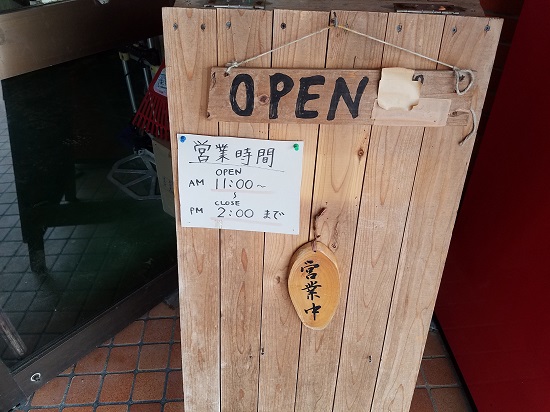 OPEN
営業時間
OPEN
AM 11:00～
～
CLOSE
PM 2:00 まで
営業中